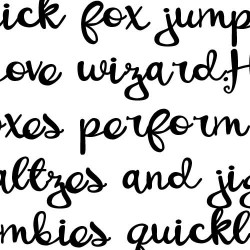 ick fox jump
ove wizard;H
oxes perform
altzes and jig
mbies quickl